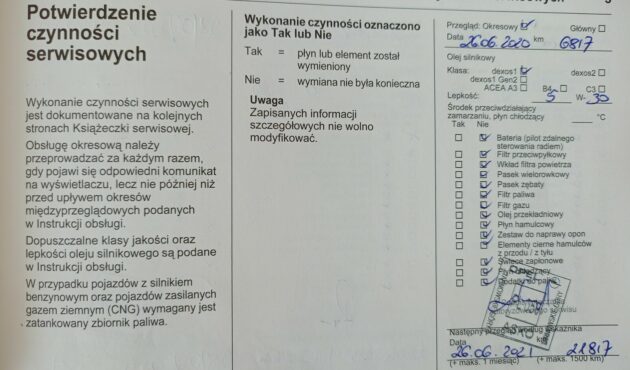 Potwierdzenie
czynności
serwisowych
Wykonanie czynności serwisowych
jest dokumentowane na kolejnych
stronach Książeczki serwisowej.
Obsługę okresową należy
przeprowadzać za każdym razem,
gdy pojawi się odpowiedni komunikat
na wyświetlaczu, lecz nie później niż
przed upływem okresów
międzyprzeglądowych podanych
w Instrukcji obsługi.
Dopuszczalne klasy jakości oraz
lepkości oleju silnikowego są podane
w Instrukcji obsługi.
W przypadku pojazdów z silnikiem
benzynowym oraz pojazdów zasilanych
gazem ziemnym (CNG) wymagany jest
zatankowany zbiornik paliwa.
Wykonanie czynności oznaczono
jako Tak lub Nie
Tak = płyn lub element został
wymieniony
Nie = wymiana nie była konieczna
Uwaga
Zapisanych informacji
szczegółowych nie wolno
modyfikować.
Przegląd: Okresowy Główny
Data 26.06.2020 km 6817
Olej silnikowy
Klasa: dexos1 dexos2
dexos1 Gen2
ACEA A3 B4 C3
Lepkość: 5 W- 30
Środek przeciwdziałający
zamarzaniu, płyn chłodzący °C
Tak Nie
Bateria (pilot zdalnego
sterowania radiem)
Filtr przeciwpyłkowy
Wkład filtra powietrza
Pasek wielorowkowy
Pasek zębaty
Filtr paliwa
Filtr gazu
Olej przekładniowy
Płyn hamulcowy
Zestaw do naprawy opon
Elementy cierne hamulców
z przodu / z tyłu
Świece zapłonowe
Następny przegląd według wskaźnika
Data km
26.06.2021 21817
(+ maks. 1 miesiąc) (+ maks. 1500 km)